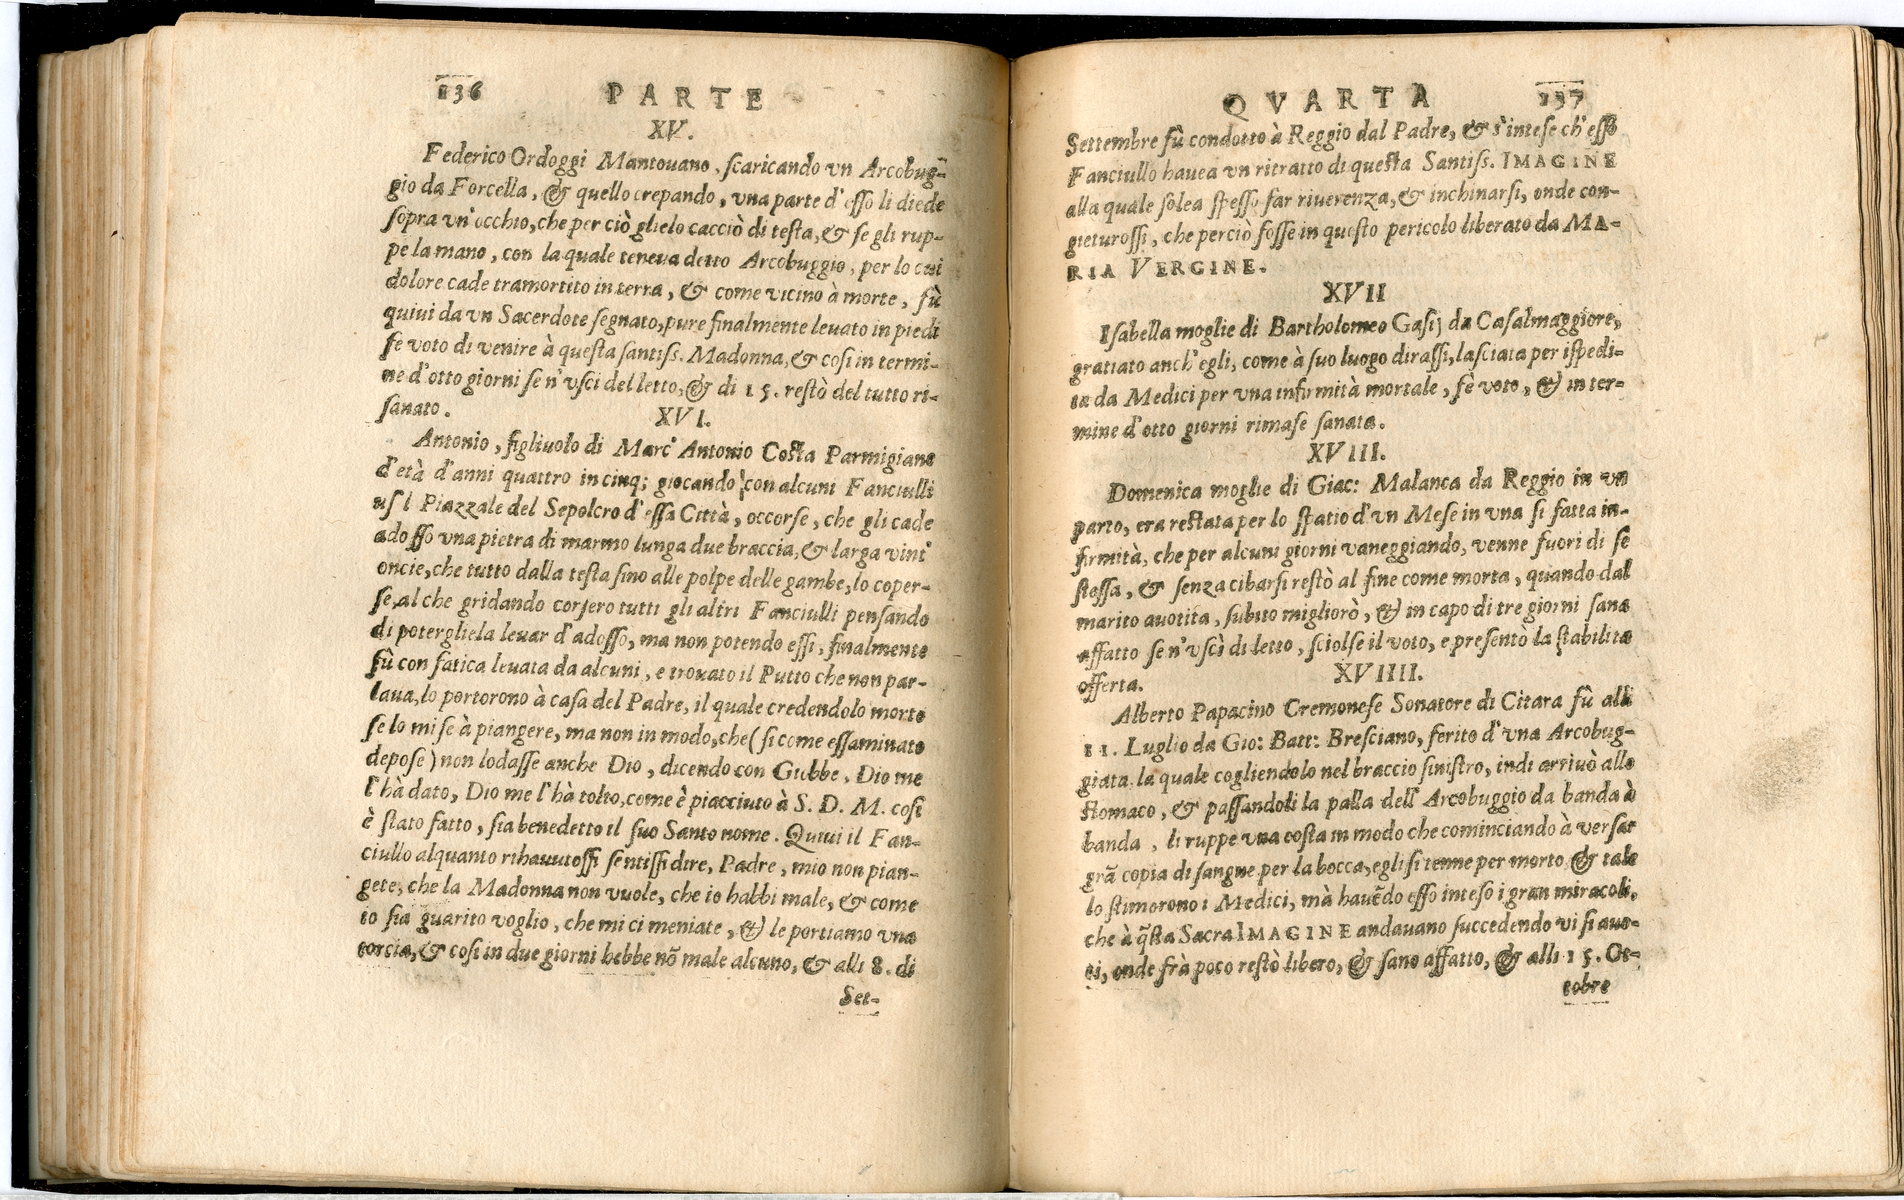 136 PARTE
XV.
Federico Ordoggi Mantouano, ſcaricando vn Arcobug-
gio da Forcella, & quello crepando, vna parte d'eſſo li diede
ſopra vn'occhio, che per ciò glielo cacciò di teſta, & ſe gli rup-
pe la mano, con la quale teneua detto Arcobuggio, per lo cui
dolore cade tramortito in terra, & come vicino à morte, fù
quiui da vn Sacerdote ſegnato, pure finalmente leuato in piedi
fe voto di venire à queſta santiſs. Madonna, & coſi in termi-
ne d'otto giorni ſe n'vſci del letto, & di 15. reſtò del tutto ri-
ſanato.
XVI.
Antonio, figliuolo di Marc' Antonio Coſta Parmigiano
d'età d'anni quattro in cinq; giocando con alcuni Fanciulli
nſl Piazzale del Sepolcro d'eſſa Città, occorſe, che gli cade
adoſſo vna pietra di marmo lunga due braccia, & larga vint'
oncie, che tutto dalla teſta fino alle polpe delle gambe, lo coper-
ſe, al che gridando corſero tutti gli altri Fanciulli penſando
di potergliela leuar d'adoſſo, ma non potendo eſſi, finalmente
fù con fatica leuata da alcuni, e trouato il Putto che non par-
laua, lo portorono à caſa del Padre, il quale credendolo morto
ſe lo miſe à piangere, ma non in modo, che (ſi come eſſaminato
depoſe) non lodaſſe anche Dio, dicendo con Giobbe, Dio me
l'hà dato, Dio me l'hà tolto, come è piacciuto à S. D. M. coſi
è ſtato fatto, ſia benedetto il ſuo Santo nome. Quiui il Fan-
ciullo alquanto rihauutoſſi ſentiſſi dire, Padre, mio non pian-
gete, che la Madonna non vuole, che io habbi male, & come
io ſia guarito voglio, che mi ci meniate, & le portiamo vna
torcia, & coſi in due giorni hebbe nō male alcuno, & alli 8. di
Set-
QVARTA 137
Settembre fù condotto à Reggio dal Padre, & s'inteſe ch'eſſo
Fanciullo hauea vn ritratto di queſta Santiſs. IMAGINE
alla quale ſolea ſpeſſo far riuerenza, & inchinarſi, onde con-
gieturoſſi, che perciò foſſe in queſto pericolo liberato da MA-
RIA VERGINE.
XVII
Iſabella moglie di Bartholomeo Gaſij da Caſalmaggiore,
gratiato anch'egli, come à ſuo luogo diraſſi, laſciata per iſpedi-
ta da Medici per vna infirmità mortale, fè voto, & in ter-
mine d'otto giorni rimaſe ſanata.
XVIII.
Domenica moglie di Giac: Malanca da Reggio in vn
parto, era reſtata per lo ſpatio d'vn Meſe in vna ſi fatta in-
firmità, che per alcuni giorni vaneggiando, venne fuori di ſe
ſteſſa, & ſenza cibarſi reſtò al fine come morta, quando dal
marito auotita, ſubito migliorò, & in capo di tre giorni ſana
affatto ſe n'vſcì di letto, ſciolſe il voto, e preſentò la ſtabilita
offerta.
XVIIII.
Alberto Papacino Cremoneſe Sonatore di Citara fù alli
11. Luglio da Gio: Batt: Breſciano, ferito d'vna Arcobug-
giata la quale cogliendolo nel braccio ſiniſtro, indi arriuò allo
ſtomaco, & paſſandoli la palla dell'Arcobuggio da banda à
banda, li ruppe vna coſta in modo che cominciando à verſar
grā copia di ſangue per la bocca, egli ſi tenne per morto, & tale
lo ſtimorono i Medici, mà hauēdo eſſo inteſo i gran miracoli,
che à q̄ſta Sacra IMAGINE andauano ſuccedendo vi ſi auo-
ti, onde frà poco reſtò libero, & ſano affatto, & alli 15. Ot-
tobre